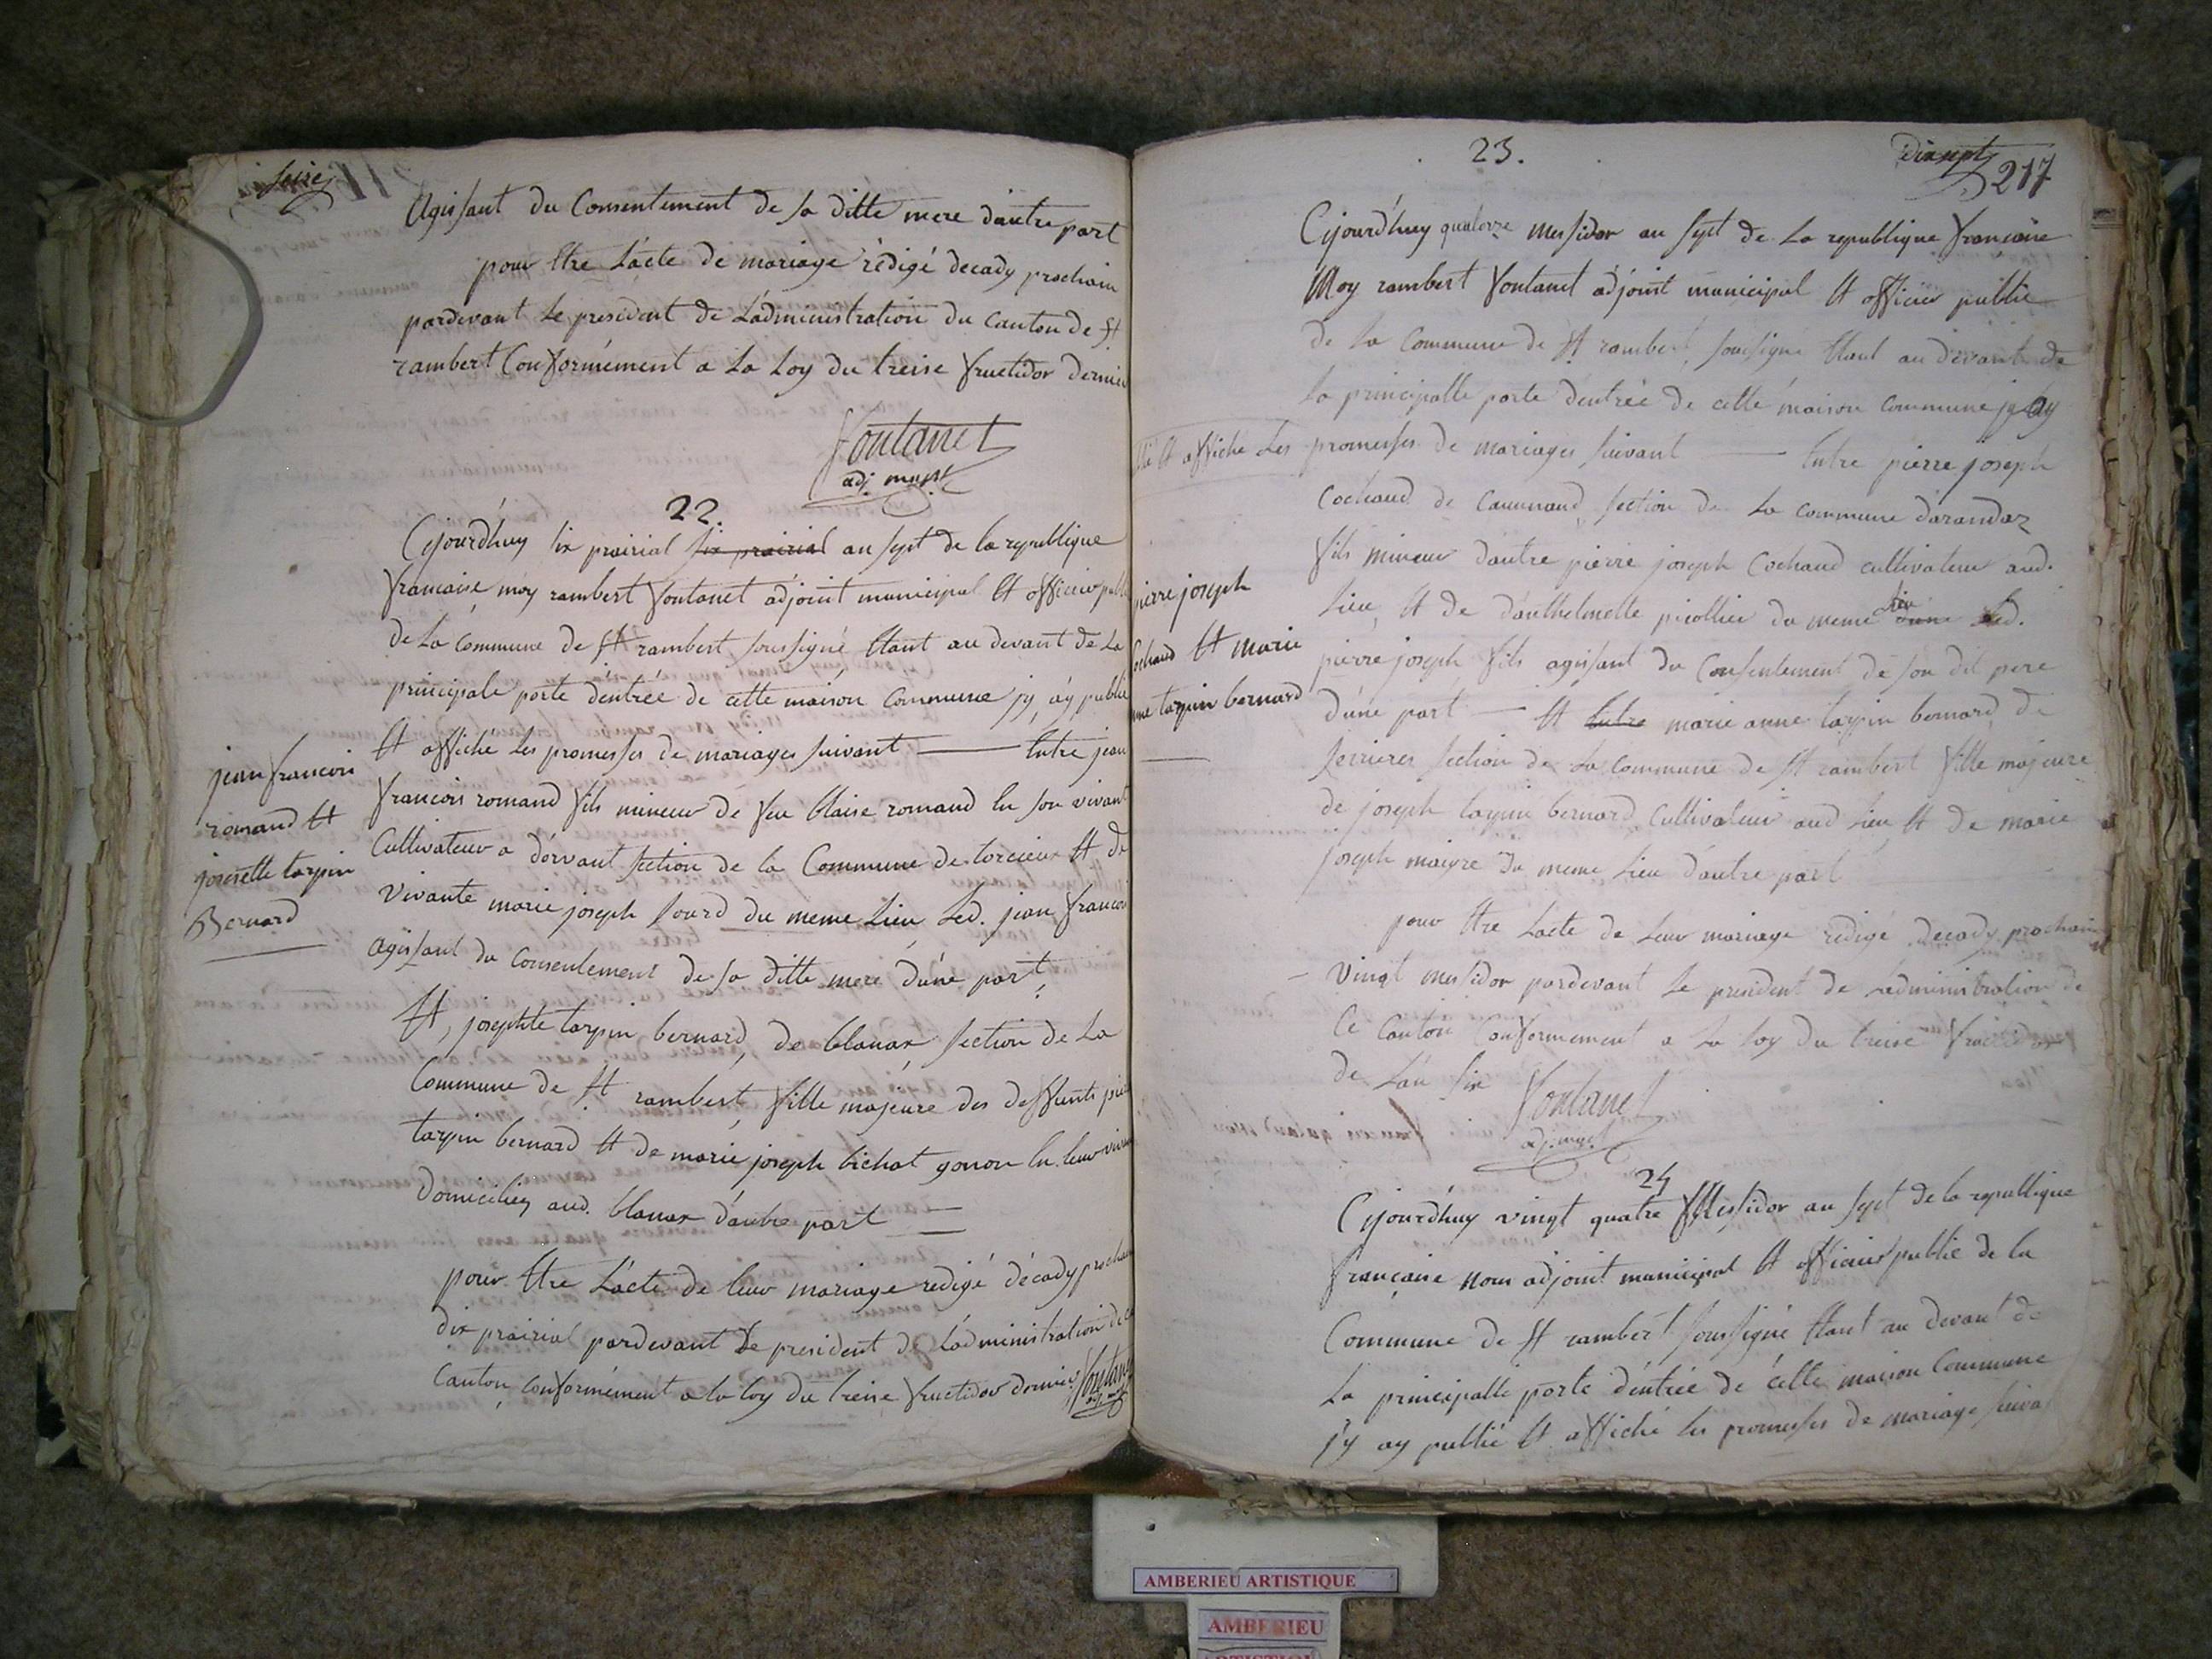 seize
Agissant du Consentement de sa ditte mere dautre part
pour Etre L'acte de mariage rédigé decady prochain
pardevant Le president de L'administration du canton de St
rambert Conformément a La Loy du treise fructidor dernier
Fontanet
adj. mupl
22.
Cejourd'huy six prairial six prairial an sept de la republique
francaise moy rambert fontanet adjoint municipal Et officier public
de La Commune de St rambert soussigné Etant au devant de La
principale porte d'entrée de cette maison Commune jy ay publié
Et affiché Les promesses de mariages suivant — Entre jean
francois romand fils mineur de feu blaise romand En son vivant
Cultivateur a dorvant section de la Commune de torcieux Et de
Vivante marie joseph sourd du meme Lieu Led. jean francois
Agissant du Consentement de sa ditte mere d'une part,
Et, josephte tarpin bernard, de blanax section de La
Commune de St rambert, fille majeure des deffunts pierre
tarpin bernard Et de marie joseph bichat gonon En leur vivant
Domiciliés aud. blanax d'autre part —
pour Etre L'acte de leur mariage redigé décady prochain
dix prairial pardevant Le president de L'administration de ce
Canton, conformément a la loy du treise fructidor dernier Fontanet
adj. mupl
jean francois
romand Et
josette tarpin
Bernard
23.
Dixsept
217
Cejourd'huy quatorze messidor an sept de La republique francaise
Moy rambert fontanet adjoint municipal Et officier public
de La Commune de St rambert, soussigné Etant au devant de
La principalle porte d'entrée de cette maison commune jy ay
publié Et affiché Les promesses de mariages suivant — Entre pierre joseph
Cochaud de section de La commune darandaz
fils mineur dautre pierre joseph Cochaud cultivateur aud.
Lieu, Et de danthelmette picollier du meme Lieu Led.
pierre joseph fils agissant du Consentement de son dit pere
d'une part — Et Entre marie anne tarpin bernard de
serrieres section de La commune de St rambert fille majeure
de joseph tarpin bernard Cultivateur aud Lieu Et de marie
joseph maigre du meme Lieu d'autre part
pour Etre L'acte de Leur mariage redigé decady prochain
vingt messidor pardevant Le president de L'administration de
Ce Canton Conformement a La loy du treise fructidor
de L'an six Fontanet
adj. mupl
pierre joseph
Cochaud Et marie
anne tarpin bernard
24
Cejourd'huy vingt quatre Messidor an sept de la republique
française nous adjoint municipal Et officier public de la
Commune de St rambert soussigné Etant au devant de
La principalle porte d'entrée de cette maison Commune
j'y ay publié Et affiché les promesses de mariage suivant
AMBERIEU ARTISTIQUE
AMBERIEU
ARTISTIQUE